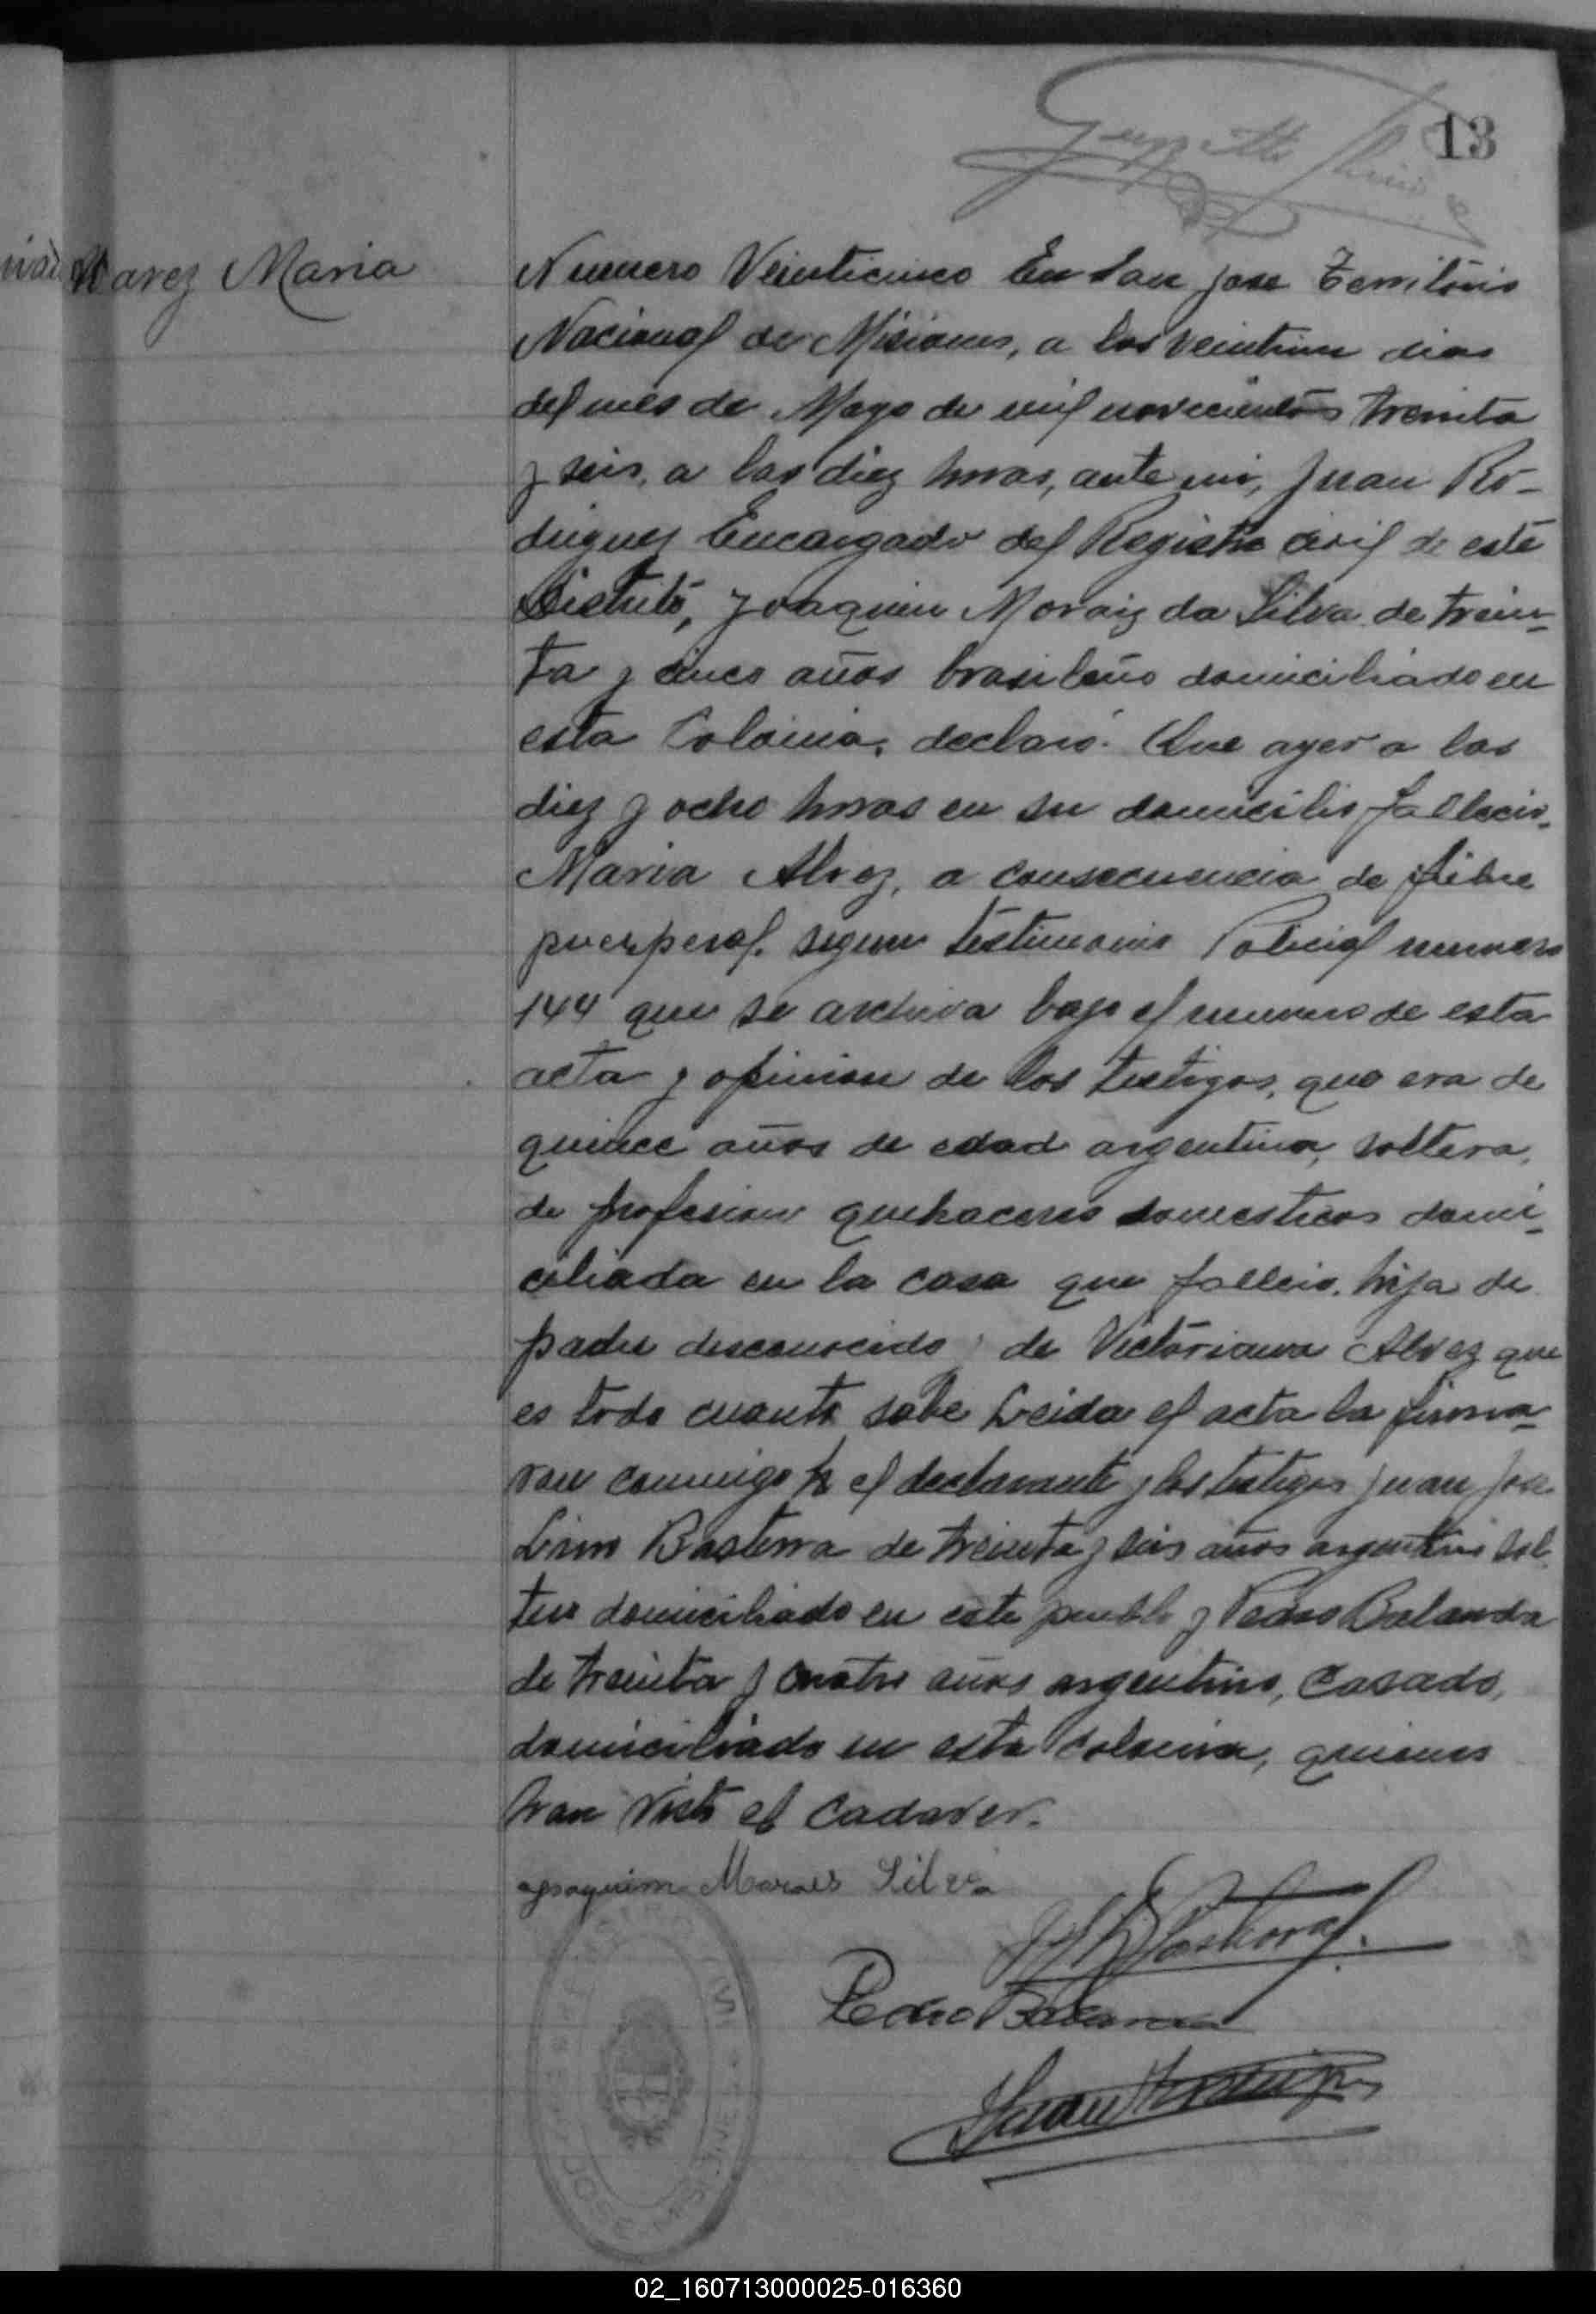 13
Alvarez Maria
Numero Veinticinco En San Jose Territorio
Nacional de Misiones, a los veintiun dias
del mes de Mayo de mil novecientos treinta
y seis, a las diez horas, ante mi, Juan Ro-
driguez Encargado del Registro civil de este
Distrito, Joaquin Moraiz da Silva de trein-
ta y cinco años brasileño domiciliado en
esta Colonia, declaró: Que ayer a las
diez y ocho horas en su domicilio fallecio
Maria Alvez, a consecuencia de fiebre
puerperal, segun testimonio Policial numero
144 que se archiva bajo el numero de esta
acta y opinion de los testigos, que era de
quince años de edad argentina, soltera,
de profesion quehaceres domesticos domi-
ciliada en la casa que fallecio, hija de
padre desconocido y de Victoriana Alvez que
es todo cuanto sabe Leida el acta la firma-
ron conmigo el declarante y los testigos Juan Jose
Basterra de treinta y seis años argentino sol-
tero domiciliado en este pueblo y Pedro Balanda
de treinta y cuatro años argentino, casado,
domiciliado en esta Colonia, quienes
han visto el cadaver.
Joaquim Moraes Silva
Pedro Balanda
Juan Rodriguez
02_160713000025-016360